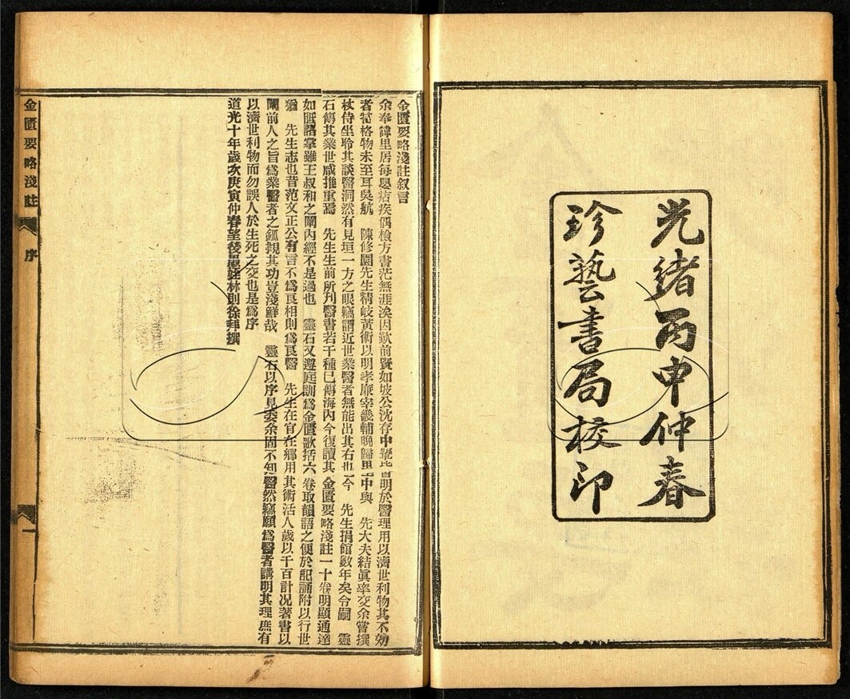 光緒丙申仲春
珍藝書局校印
金匱要略淺註叙言
余奉諱里居每嬰痁疾偶檢方書茫無涯涘因歎前賢如坡公沈存中輩皆明於醫理用以濟世利物其不効
者當格物未至耳吳航 陳修園先生精岐黃術以明孝廉宰畿輔晚歸里中與 先大夫結眞率交余嘗撰
杖侍坐聆其談醫洞然有見垣一方之眼竊謂近世業醫者無能出其右也今 先生捐館數年矣令嗣 靈
石傳其業世咸推重焉 先生生前所刋醫書若干種已傳海內今復讀其金匱要略淺註一十卷明顯通達
如眂諸掌雖王叔和之闡內經不是過也 靈石又遵庭訓爲金匱歌括六卷取韻語之便於記誦附以行世
猶 先生志也昔范文正公有言不爲良相則爲良醫 先生在官在鄉用其術活人歲以千百計况著書以
闡前人之旨爲業醫者之其功豈淺鮮哉 靈石以序見委余固不知醫然竊願爲醫者講明其理庶有
以濟世利物而勿誤人於生死之交也是爲序
道光十年歲次庚寅仲春望後愚姪林則徐拜撰
金匱要略淺註 序 一